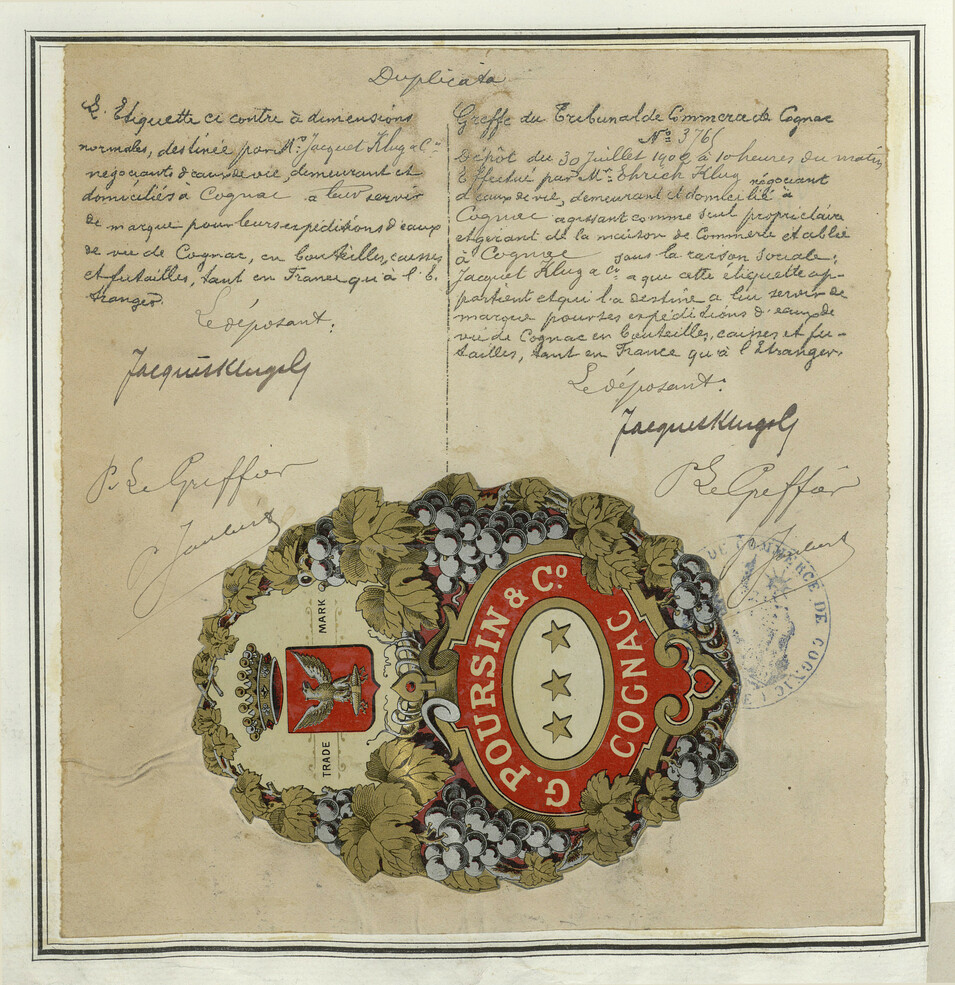 Duplicata
L'Etiquette ci contre à dimensions
normales, destinée par Mr. Jacquet Klug & Cie
négociants d'eaux de vie, demeurant et
domiciliés à Cognac a leur servir
de marque pour leurs expéditions d'eaux
de vie de Cognac, en bouteilles, caisses
et futailles, tant en France qu'à l'E-
tranger.
Le déposant:
P. Le Greffier
Greffe du Tribunal de Commerce de Cognac
No 3761
Dépôt du 30 Juillet à 10 heures du matin
Effectué par Mr. Ehrich Klug négociant
d'eaux de vie, demeurant et domicilié à
Cognac agissant comme seul propriétaire
et gérant de la maison de Commerce etablie
à Cognac sous la raison sociale:
Jacquet Klug & Co a que cette étiquette ap-
partient et qui l'a destiné a lui servir de
marque pour ses expéditions d'eaux de
vie de Cognac en bouteilles, caisses et fu-
tailles, tant en France qu'à l'Etranger.
Le déposant:
P. Le Greffier
TRADE MARK
G. POURSIN & Co.
COGNAC
DE COMMERCE DE COGNAC